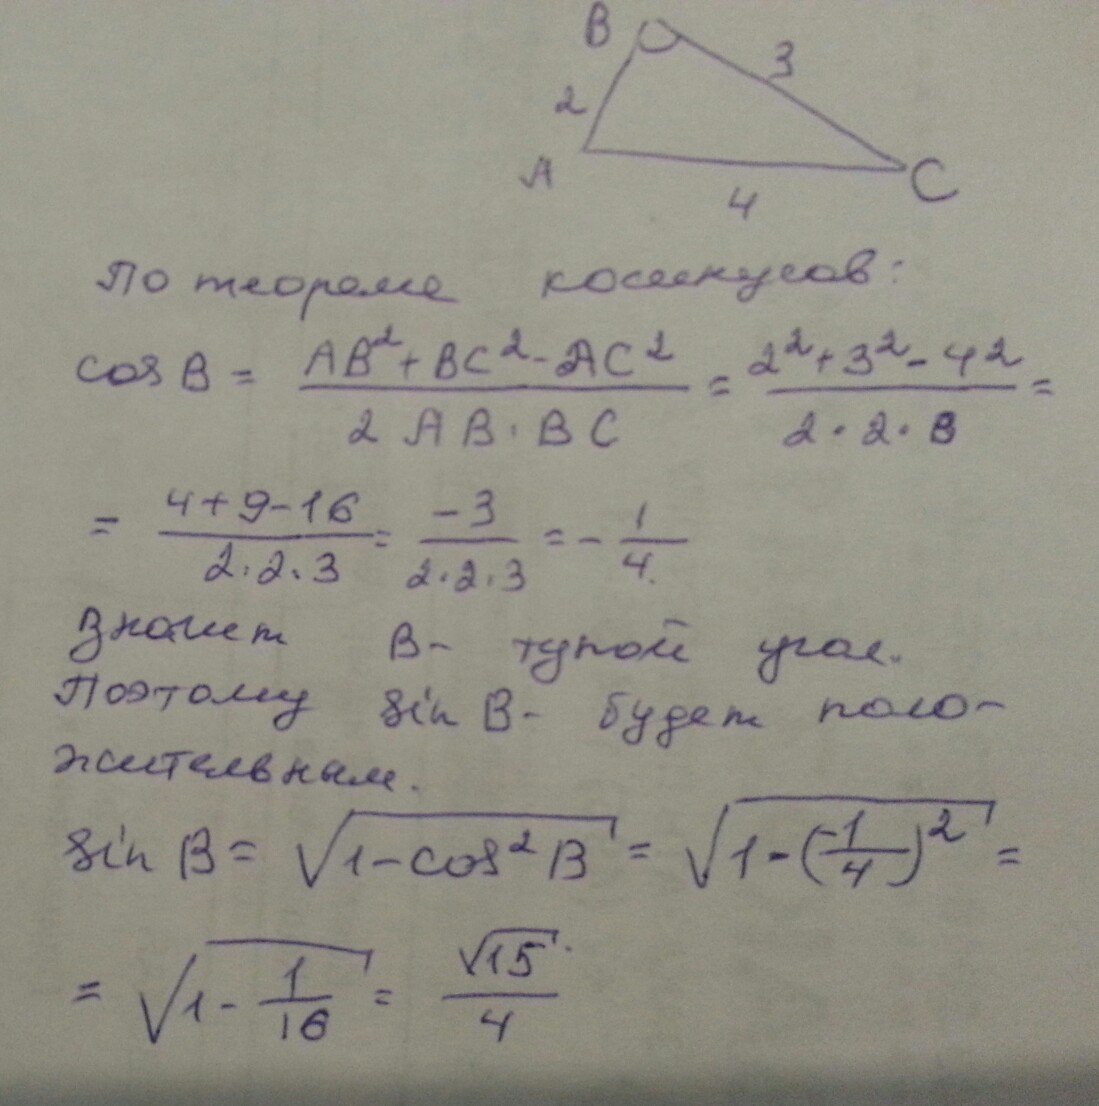 B
3
2
A
4
C
По теореме косинусов:
cos B = (AB² + BC² - AC²) / (2 AB · BC) = (2² + 3² - 4²) / (2 · 2 · 3) =
= (4 + 9 - 16) / (2 · 2 · 3) = (-3) / (2 · 2 · 3) = - 1/4
Значит B - тупой угол.
Поэтому sin B - будет поло-
жительным.
sin B = √(1 - cos² B) = √(1 - (-1/4)²) =
= √(1 - 1/16) = √15 / 4